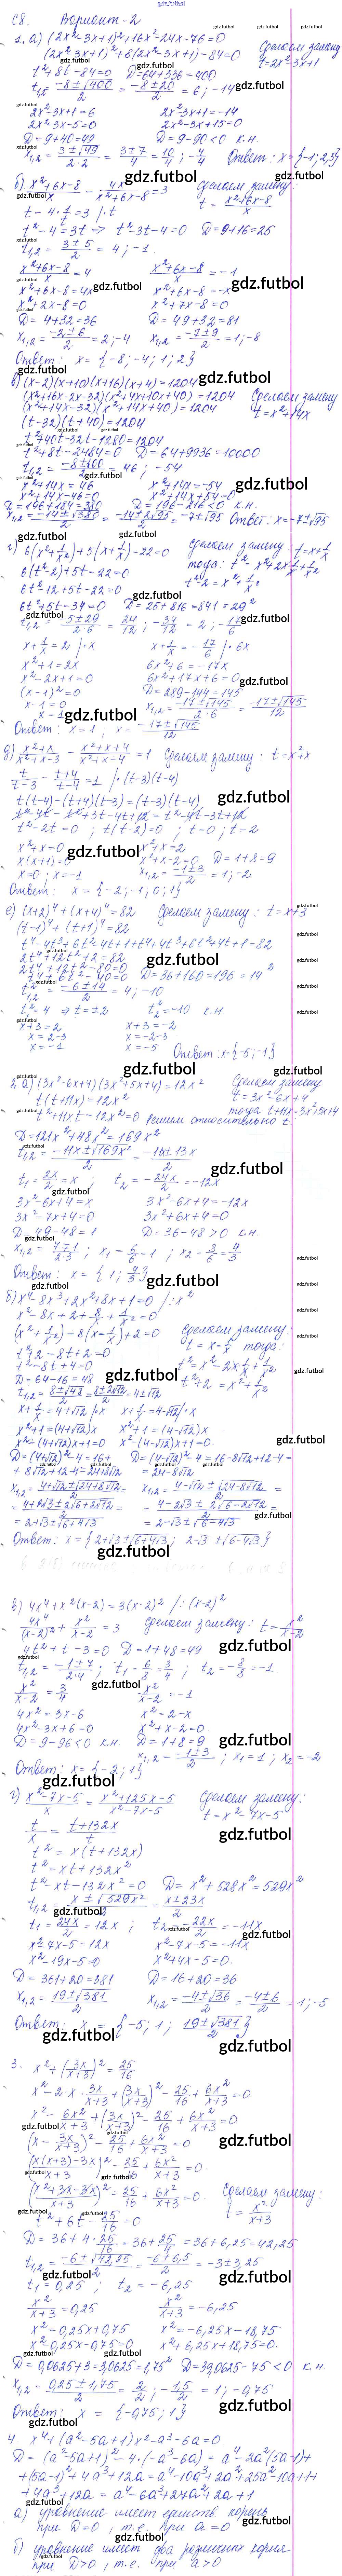 С8. Вариант-2
1. а) (2x²-3x+1)²+16x²-24x-76=0
(2x²-3x+1)²+8(2x²-3x+1)-84=0 Сделаем замену t=2x²-3x+1
t²+8t-84=0 D=64+336=400
t₁,₂ = (-8±√400)/2 = (-8±20)/2 = 6; -14
2x²-3x+1=6 2x²-3x+1=-14
2x²-3x-5=0 2x²-3x+15=0
D=9+40=49 D=9-90<0 к.н.
Ответ: x={-1; 2,5}
б) (x²+6x-8)/x - 4x/(x²+6x-8) = 3 Сделаем замену: t = (x²+6x-8)/x
t-4·1/t=3 /·t
t²-4=3t => t²-3t-4=0 D=9+16=25
t₁,₂ = (3±5)/2 = 4; -1.
(x²+6x-8)/x = 4 (x²+6x-8)/x = -1
x²+6x-8=4x x²+6x-8=-x
x²+2x-8=0 x²+7x-8=0
D=4+32=36 D=49+32=81
x₁,₂ = (-2±6)/2 = 2; -4 x₁,₂ = (-7±9)/2 = 1; -8
Ответ: x={-8; -4; 1; 2}
в) (x-2)(x+10)(x+16)(x+4)=1204
(x²+14x-32)(x²+14x+40)=1204 Сделаем замену t=x²+14x
(t-32)(t+40)=1204
t²+40t-32t-1280=1204
t²+8t-2484=0 D=64+9936=10000
t₁,₂ = (-8±100)/2 = 46; -54
x²+14x=46 x²+14x=-54
x²+14x-46=0 x²+14x+54=0
D=196+184=380 D=196-216<0 к.н.
x₁,₂ = (-14±√380)/2 = (-14±2√95)/2 = -7±√95 Ответ: x=-7±√95
г) 6(x²+1/x²)+5(x+1/x)-22=0 Сделаем замену: t=x+1/x
6(t²-2)+5t-22=0
6t²-12+5t-22=0
6t²+5t-34=0 D=25+816=841=29²
t₁,₂ = (-5±29)/(2·6) = 24/12; -34/12 = 2; -17/6
x+1/x=2 /·x x+1/x=-17/6 /·6x
x²+1=2x 6x²+6=-17x
x²-2x+1=0 6x²+17x+6=0
(x-1)²=0 D=289-144=145
x-1=0 x₁,₂ = (-17±√145)/(2·6) = (-17±√145)/12
x=1
Ответ: x=1; x=(-17±√145)/12
д) (x²+x)/(x²+x-3) - (x²+x+4)/(x²+x-4) = 1 Сделаем замену: t=x²+x
t/(t-3) - (t+4)/(t-4) = 1 /·(t-3)(t-4)
t(t-4)-(t+4)(t-3)=(t-3)(t-4)
t²-4t-t²+3t-4t+12=t²-4t-3t+12
t²-2t=0; t(t-2)=0; t=0; t=2
x²+x=0 x²+x=2
x(x+1)=0 x²+x-2=0 D=1+8=9
x=0; x=-1 x₁,₂ = (-1±3)/2 = 1; -2
Ответ: x={-2; -1; 0; 1}
е) (x+2)⁴+(x+4)⁴=82 Сделаем замену: t=x+3
(t-1)⁴+(t+1)⁴=82
t⁴-4t³+6t²-4t+1+t⁴+4t³+6t²+4t+1=82
2t⁴+12t²+2=82
2t⁴+12t²-80=0
t⁴+6t²-40=0 D=36+160=196=14²
t²₁,₂ = (-6±14)/2 = 4; -10
t²=4 => t=±2 t²=-10 к.н.
x+3=2 x+3=-2
x=2-3 x=-2-3
x=-1 x=-5
Ответ: x={-5; -1}
2. а) (3x²-6x+4)(3x²+5x+4)=12x² Сделаем замену t=3x²-6x+4
t(t+11x)=12x² тогда t+11x=3x²+5x+4
t²+11xt-12x²=0 решим относительно t.
D=121x²+48x²=169x²
t₁,₂ = (-11x±√169x²)/2 = (-11x±13x)/2
t₁ = 2x/2 = x t₂ = -24x/2 = -12x
3x²-6x+4=x 3x²-6x+4=-12x
3x²-7x+4=0 3x²+6x+4=0
D=49-48=1 D=36-48>0 к.н.
x₁,₂ = (7±1)/(2·3); x₁=6/6=1; x₂=8/6=4/3
Ответ: x={1; 4/3}
б) x⁴-8x³+2x²+8x+1=0 /:x²
x²-8x+2+8/x+1/x²=0
(x²+1/x²)-8(x-1/x)+2=0 Сделаем замену: t=x-1/x тогда:
t²+2-8t+2=0
t²-8t+4=0
D=64-16=48 t²+2=x²+1/x²
t₁,₂ = (8±√48)/2 = (8±2√12)/2 = 4±√12
x²+1=(4+√12)x x²+1=(4-√12)x
x²-(4+√12)x+1=0 x²-(4-√12)x+1=0.
Ответ: x={2+√3±√(6+4√3); 2-√3±√(6-4√3)}
в) 4x⁴+x²(x-2)=3(x-2)² /:(x-2)²
4x⁴/(x-2)² + x²/(x-2) = 3 Сделаем замену: t=x²/(x-2)
4t²+t-3=0 D=1+48=49
t₁,₂ = (-1±7)/(2·4); t₁=6/8=3/4; t₂=-8/8=-1.
x²/(x-2)=3/4 x²/(x-2)=-1.
4x²=3x-6 x²=2-x
4x²-3x+6=0 x²+x-2=0.
D=9-96<0 к.н. D=1+8=9
x₁,₂ = (-1±3)/2; x₁=1; x₂=-2
Ответ: x={-2; 1}
г) (x²-7x-5)/x = (x²+125x-5)/(x²-7x-5) Сделаем замену: t=x²-7x-5
t/x = (t+132x)/t
t²=x(t+132x)
t²=xt+132x²
t²-xt-132x²=0 D=x²+528x²=529x²
t₁,₂ = (x±√529x²)/2 = (x±23x)/2
t₁=24x/2=12x; t₂=-22x/2=-11x
x²-7x-5=12x x²-7x-5=-11x
x²-19x-5=0 x²+4x-5=0.
D=361+20=381 D=16+20=36
x₁,₂ = (19±√381)/2 x₁,₂ = (-4±√36)/2 = (-4±6)/2 = 1; -5
Ответ: x={-5; 1; (19±√381)/2}
3. x²+(3x/(x+3))²=25/16
x²-2·x·3x/(x+3)+(3x/(x+3))²-25/16+6x²/(x+3)=0
x²-6x²/(x+3)+(3x/(x+3))²-25/16+6x²/(x+3)=0
(x-3x/(x+3))²-25/16+6x²/(x+3)=0
((x(x+3)-3x)/(x+3))²-25/16+6x²/(x+3)=0.
((x²+3x-3x)/(x+3))²-25/16+6x²/(x+3)=0. Сделаем замену: t=x²/(x+3)
t²+6t-25/16=0
D=36+4·25/16=36+25/4=36+6,25=42,25
t₁,₂ = (-6±√42,25)/2 = (-6±6,5)/2 = -3±3,25
t₁=0,25; t₂=-6,25
x²/(x+3)=0,25 x²/(x+3)=-6,25
x²=0,25x+0,75 x²=-6,25x-18,75
x²-0,25x-0,75=0 x²+6,25x+18,75=0.
D=0,0625+3=3,0625=1,75² D=39,0625-75<0 к.н.
x₁,₂ = (0,25±1,75)/2 = 2/2; -1,5/2 = 1; -0,75
Ответ: x={-0,75; 1}
4. x⁴+(a²-5a+1)x²-a³-6a=0.
D=(a²-5a+1)²-4·(-a³-6a)=a⁴-2a²(5a-1)+
+(5a-1)²+4a³+12a=a⁴-10a³+2a²+25a²-10a+1+
+4a³+12a=a⁴-6a³+24a²+2a+1
а) уравнение имеет единств. корень
при D=0, т.е. при a=0
б) уравнение имеет два различных корня
при D>0, т.е. при a>0
gdz.futbol